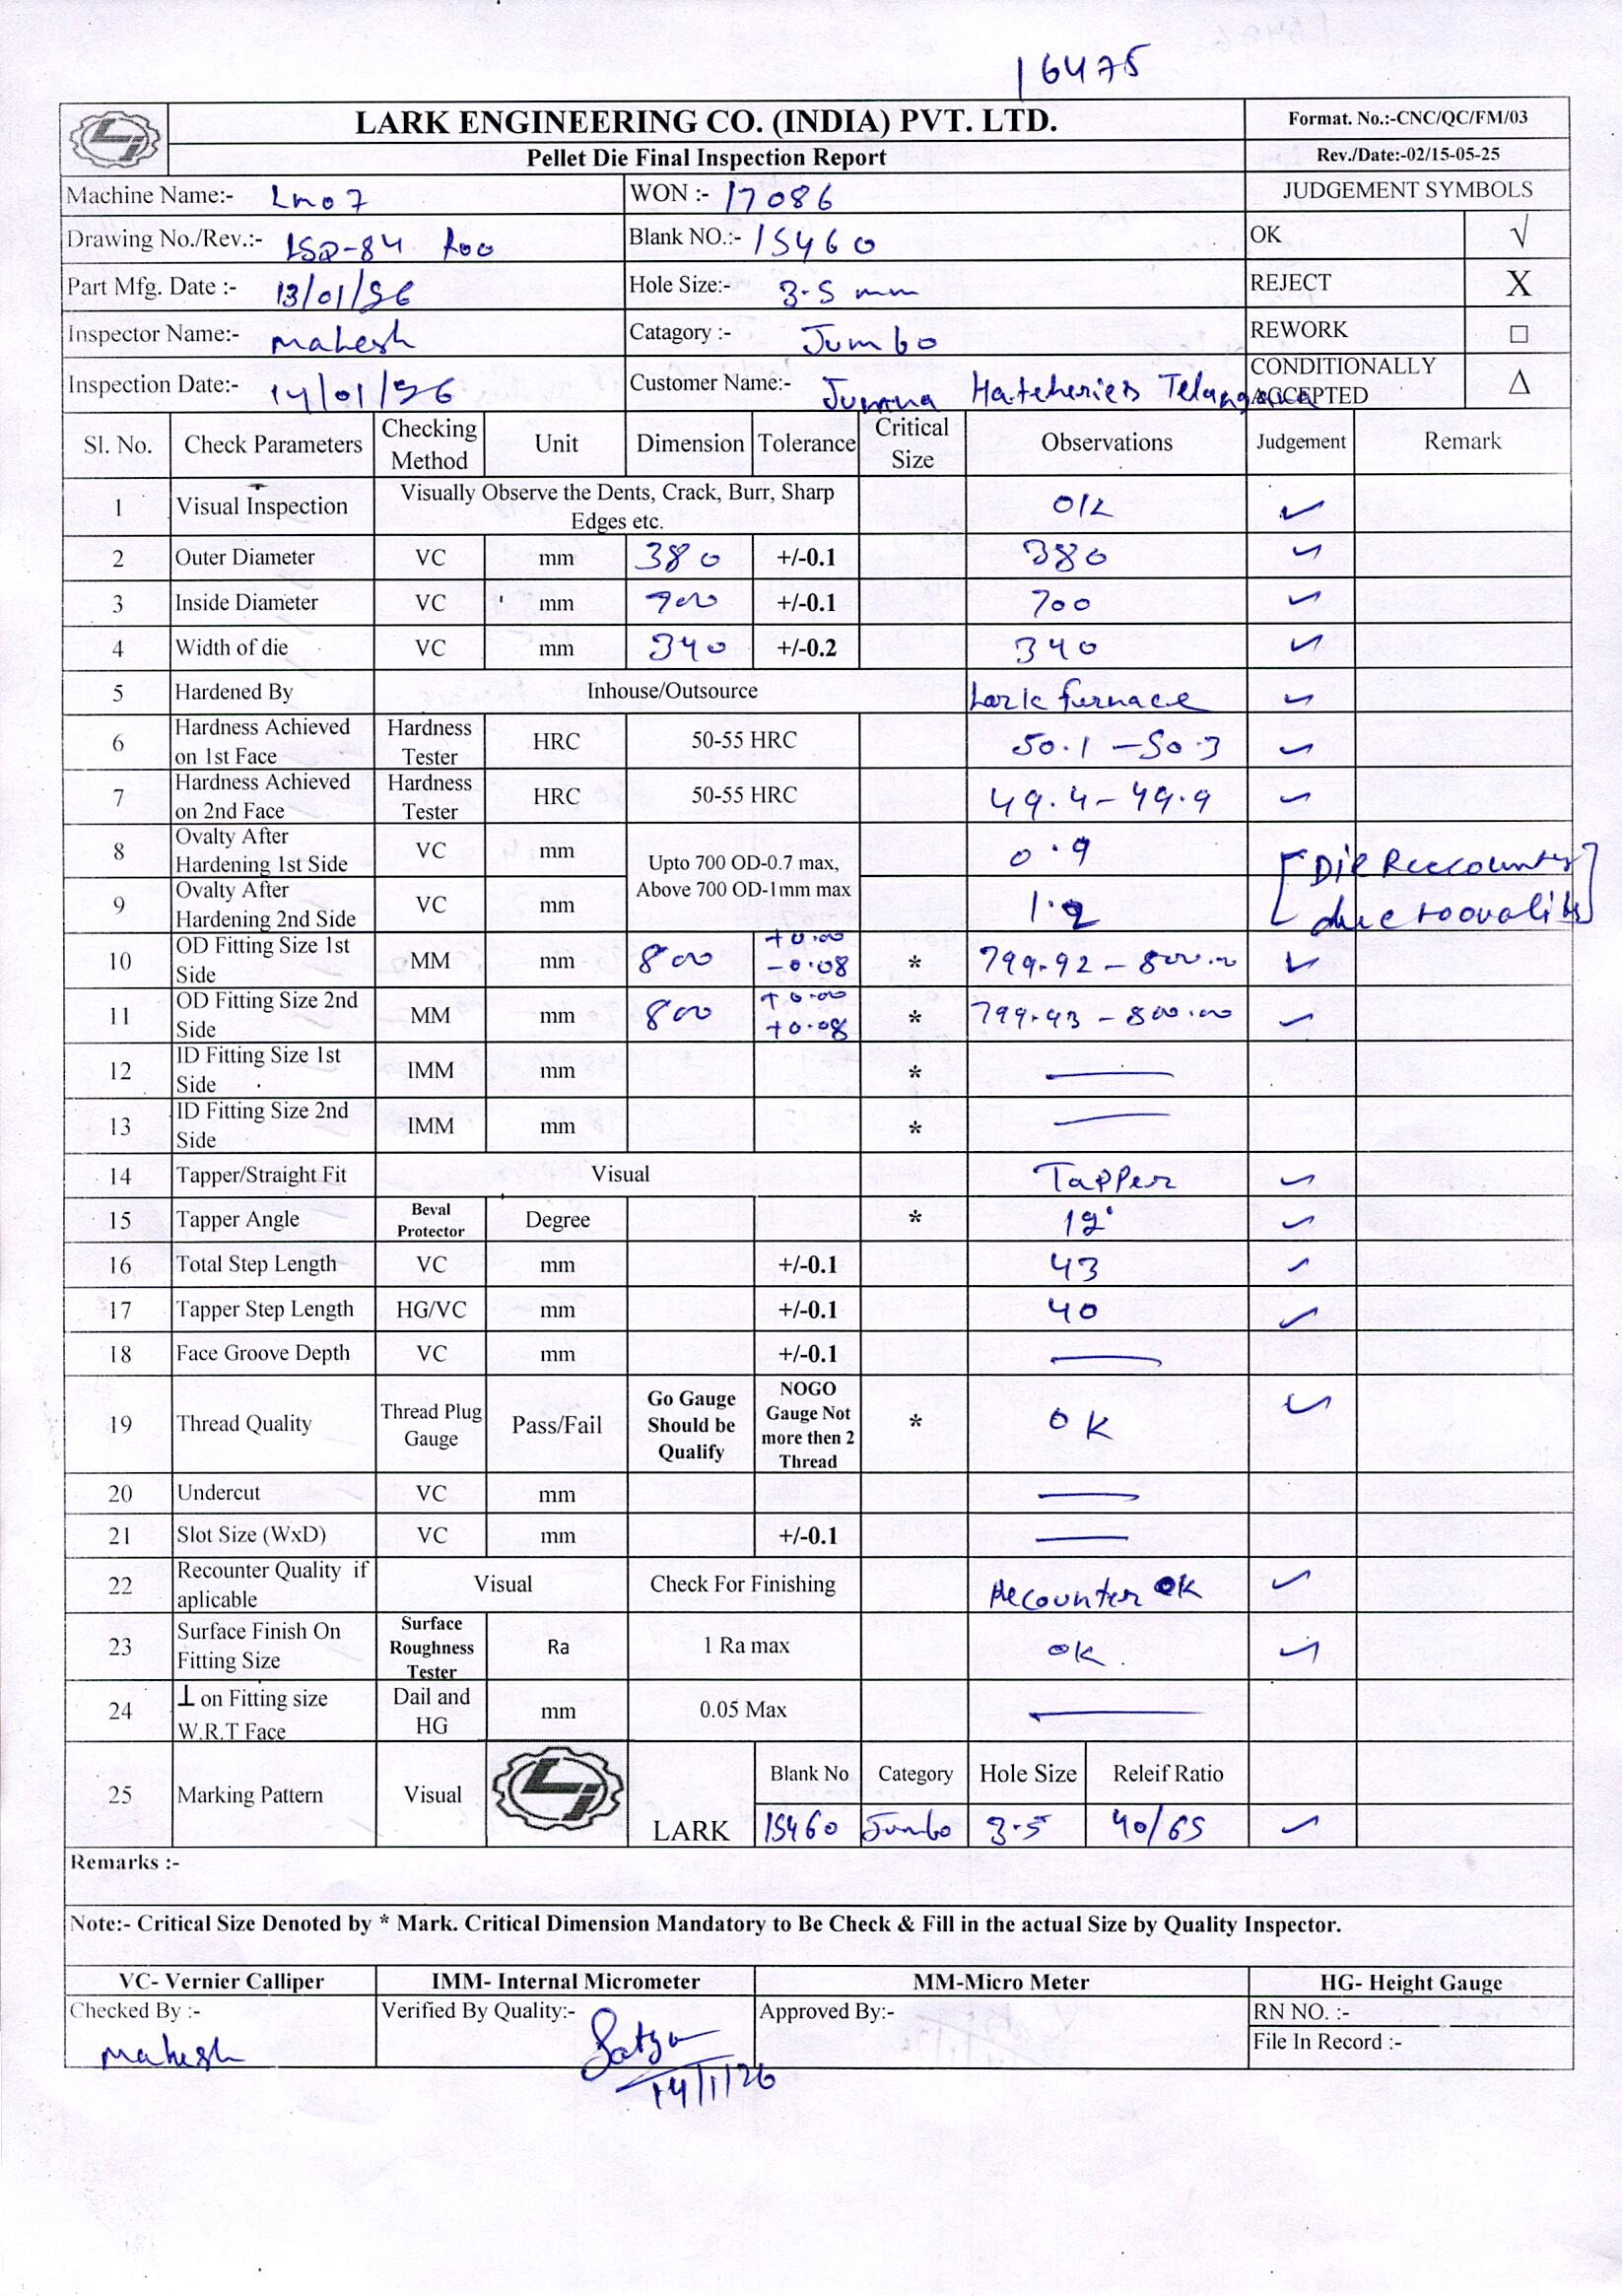 16475
LARK ENGINEERING CO. (INDIA) PVT. LTD.
Format. No.:-CNC/QC/FM/03
Pellet Die Final Inspection Report
Rev./Date:-02/15-05-25
Machine Name:- Lm07 WON :- 17086 JUDGEMENT SYMBOLS
Drawing No./Rev.:- LSD-84 R00 Blank NO.:- 15460 OK √
Part Mfg. Date :- 13/01/26 Hole Size:- 3.5 mm REJECT X
Inspector Name:- Mahesh Catagory :- Jumbo REWORK □
Inspection Date:- 14/01/26 Customer Name:- Hatcheries Telangana CONDITIONALLY ACCEPTED Δ
Sl. No. Check Parameters Checking Method Unit Dimension Tolerance Critical Size Observations Judgement Remark
1 Visual Inspection Visually Observe the Dents, Crack, Burr, Sharp Edges etc. OK ✓
2 Outer Diameter VC mm 380 +/-0.1 380 ✓
3 Inside Diameter VC mm 700 +/-0.1 700 ✓
4 Width of die VC mm 340 +/-0.2 340 ✓
5 Hardened By Inhouse/Outsource Lark furnace ✓
6 Hardness Achieved on 1st Face Hardness Tester HRC 50-55 HRC 50.1 - 50.3 ✓
7 Hardness Achieved on 2nd Face Hardness Tester HRC 50-55 HRC 49.4 - 49.9 ✓
8 Ovalty After Hardening 1st Side VC mm Upto 700 OD-0.7 max, Above 700 OD-1mm max 0.9 [Die Reccounter
9 Ovalty After Hardening 2nd Side VC mm 1.2 due to ovality]
10 OD Fitting Size 1st Side MM mm 800 +0.00 -0.08 * 799.92 - 800.00 ✓
11 OD Fitting Size 2nd Side MM mm 800 +0.00 +0.08 * 799.93 - 800.00 ✓
12 ID Fitting Size 1st Side IMM mm * —
13 ID Fitting Size 2nd Side IMM mm * —
14 Tapper/Straight Fit Visual Tapper ✓
15 Tapper Angle Beval Protector Degree * 12° ✓
16 Total Step Length VC mm +/-0.1 43 ✓
17 Tapper Step Length HG/VC mm +/-0.1 40 ✓
18 Face Groove Depth VC mm +/-0.1 —
19 Thread Quality Thread Plug Gauge Pass/Fail Go Gauge Should be Qualify NOGO Gauge Not more then 2 Thread * OK ✓
20 Undercut VC mm —
21 Slot Size (WxD) VC mm +/-0.1 —
22 Recounter Quality if aplicable Visual Check For Finishing Recounter OK ✓
23 Surface Finish On Fitting Size Surface Roughness Tester Ra 1 Ra max OK ✓
24 ⊥ on Fitting size W.R.T Face Dail and HG mm 0.05 Max —
25 Marking Pattern Visual LARK Blank No Category Hole Size Releif Ratio
15460 Jumbo 3.5 40/65 ✓
Remarks :-
Note:- Critical Size Denoted by * Mark. Critical Dimension Mandatory to Be Check & Fill in the actual Size by Quality Inspector.
VC- Vernier Calliper IMM- Internal Micrometer MM-Micro Meter HG- Height Gauge
Checked By :- Verified By Quality:- Approved By:- RN NO. :-
Mahesh Satya File In Record :-
14/1/26